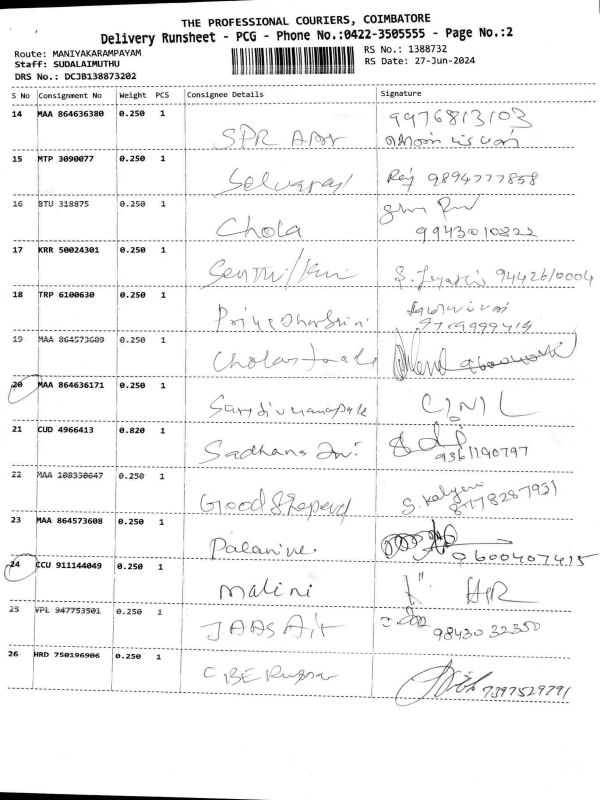 THE PROFESSIONAL COURIERS, COIMBATORE
Delivery Runsheet - PCG - Phone No.:0422-3505555 - Page No.:2
Route: MANIYAKARAMPAYAM
RS No.: 1388732
Staff: SUDALAIMUTHU
RS Date: 27-Jun-2024
DRS No.: DCJB138873202
S No Consignment No Weight PCS Consignee Details Signature
14 MAA 864636380 0.250 1
9976813103
SPR
15 MTP 3090077 0.250 1
Selvaraj 9894777858
16 BTU 318875 0.250 1
Chola
9943010822
17 KRR 50024301 0.250 1
9442610004
18 TRP 6100630 0.250 1
Priyadharsini
9719999419
19 MAA 864573609 0.250 1
20 MAA 864636171 0.250 1
21 CUD 4966413 0.820 1
Sadhana
9361190797
22 MAA 108330647 0.250 1
Good Sheperd S. Kalyani
8778287931
23 MAA 864573608 0.250 1
9600407415
24 CCU 911144049 0.250 1
Malini
25 VPL 947753501 0.250 1
9843032350
26 HRD 750196906 0.250 1
CBE
7397529791